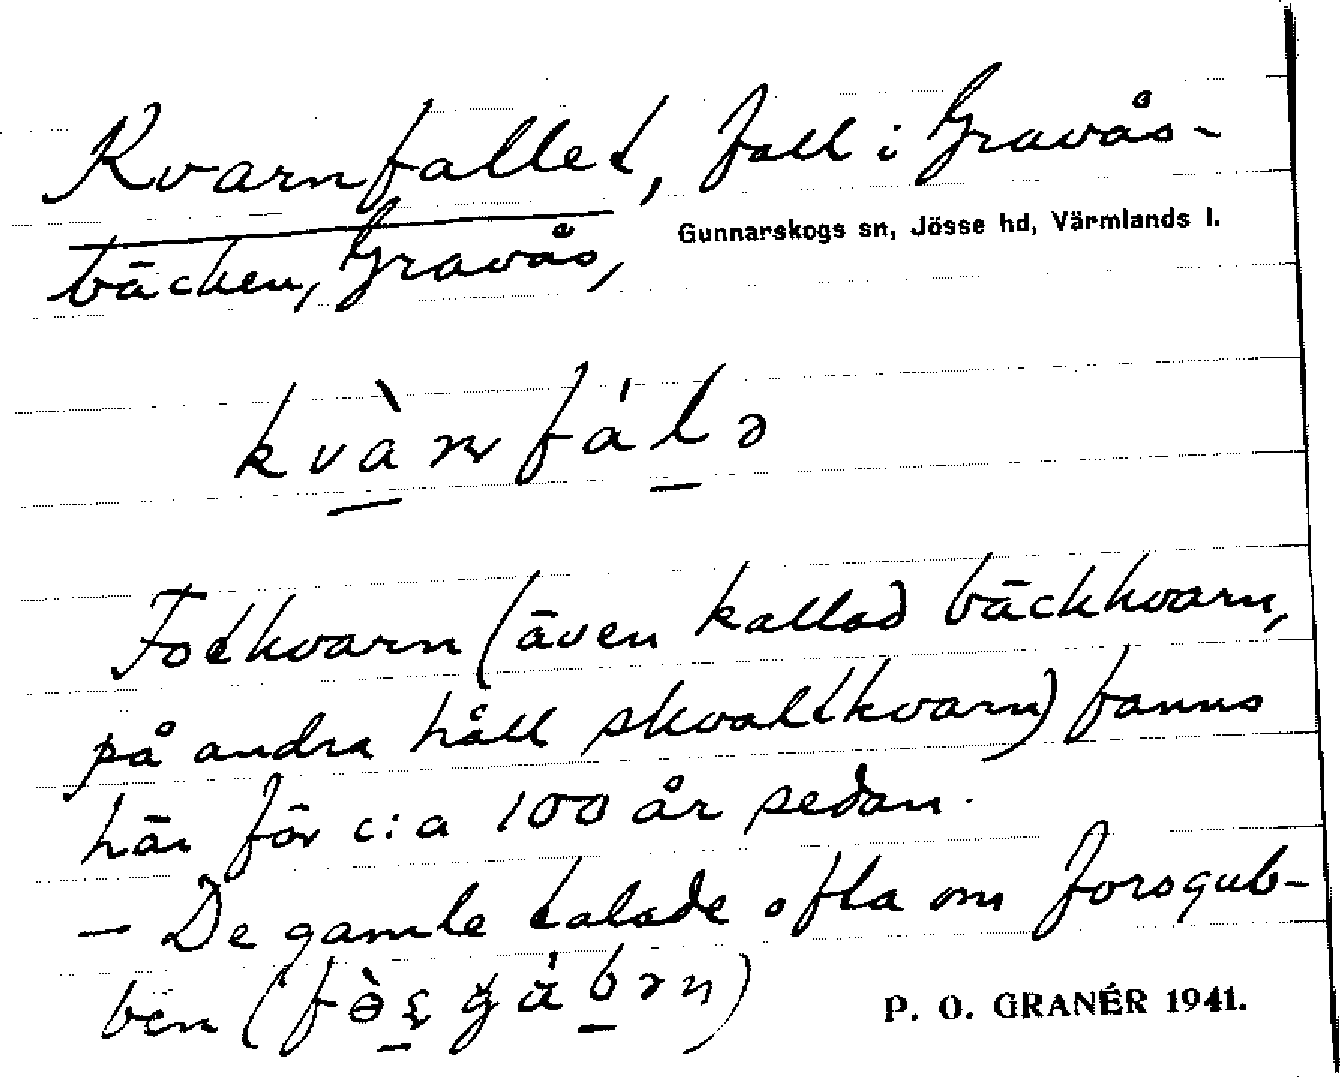 Kvarnfallet, fall i Gravås-
Gunnarskogs sn, Jösse hd, Värmlands l.
bäcken, Gravås,
kvàrnfálə
Fotkvarn (även kallad bäckkvarn,
på andra håll skvaltkvarn) fanns
här för c:a 100 år sedan.
— De gamle talade ofta om forsgub-
ben
P. O. GRANÉR 1941.